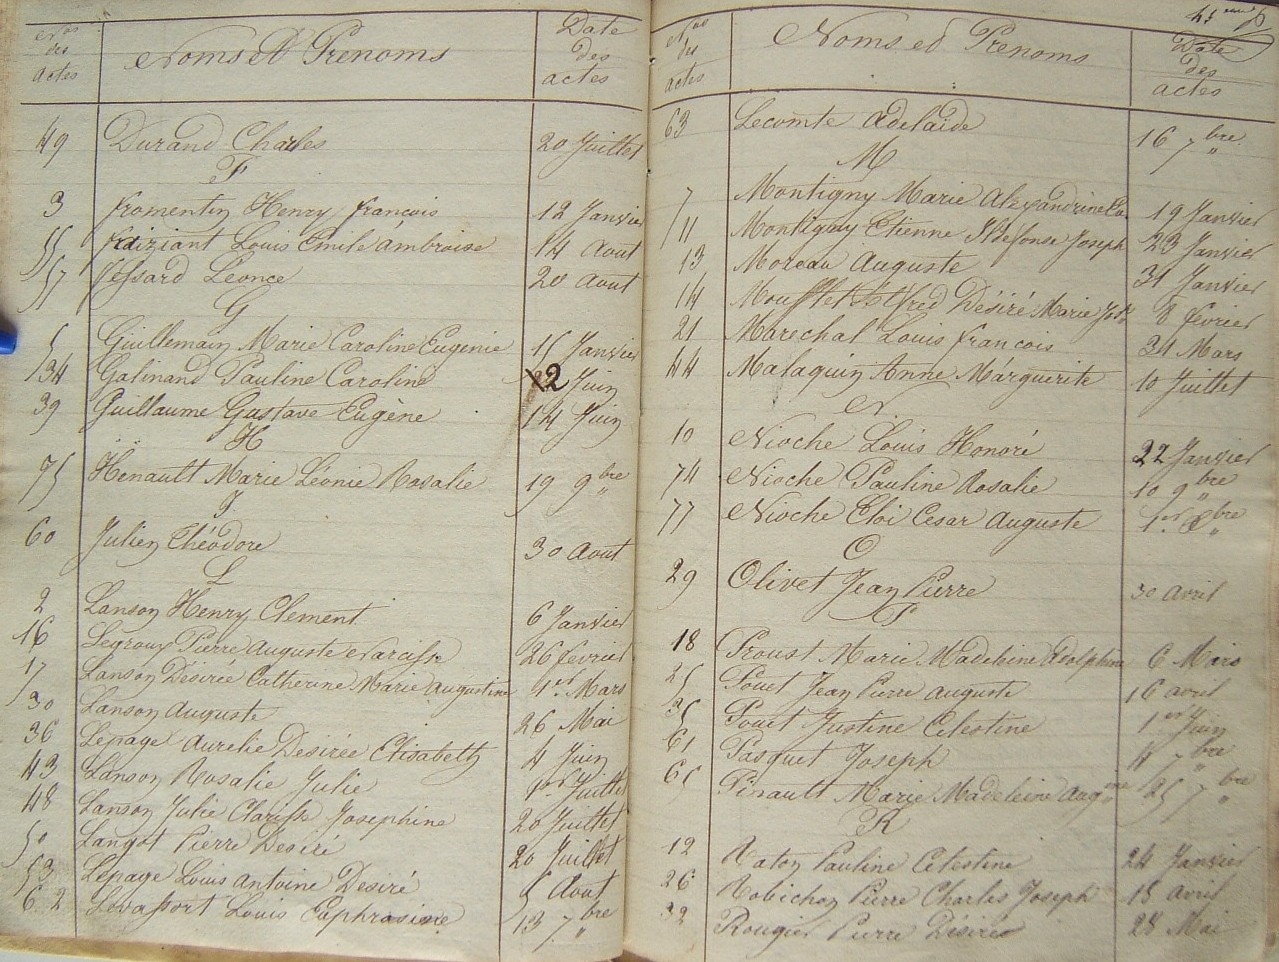 Nos des actes Noms et Prenoms Date des actes
49 Durand Charles 20 Juillet
F
3 fromentin Henry françois 12 Janvier
55 Louis Emile ambroise 14 Aout
57 fessard Leonce 20 Aout
G
5 Guillemain Marie Caroline Eugenie 15 Janvier
34 Galinand Pauline Caroline 2 Juin
39 Guillaume Gustave Eugène 14 Juin
H
75 Henault Marie Léonie Rosalie 19 9bre
J
60 Julien Théodore 30 Aout
L
2 Lanson Henry Clement 6 Janvier
16 Legroux Pierre Auguste Narcisse 26 fevrier
17 Lanson Désirée Catherine Marie Augustine 1er Mars
30 Lanson Auguste 26 Mai
36 Lepage Aurelie Desirée Elisabeth 4 Juin
43 Lanson Rosalie Julie 1er Juillet
48 Lanson Julie Clarisse Josephine 20 Juillet
50 Langot Pierre Desiré 20 Juillet
53 Lepage Louis Antoine Desiré 5 Aout
62 Levassort Louis Euphrasine 13 7bre
Nos des actes Noms et Prenoms Date des actes
63 Lecomte Adelaide 16 7bre
M
7 Montigny Marie Alexandrine 19 Janvier
11 Montigny Etienne Ildefonse Joseph 23 Janvier
13 Moreau Auguste 31 Janvier
14 Moufflet Alfred Désiré Marie Jph 8 fevrier
21 Marechal Louis francois 31 Mars
44 Malaquin Anne Marguerite 10 Juillet
N
10 Nioche Louis Honoré 22 Janvier
74 Nioche Pauline Rosalie 10 9bre
77 Nioche Eloi Cesar Auguste 1er Xbre
O
29 Olivet Jean Pierre 30 Avril
P
18 Proust Marie Madeleine Adolphine 6 Mars
25 Pouet Jean Pierre Auguste 16 avril
35 Pouet Justine Celestine 1er Juin
61 Pasquet Joseph 4 7bre
65 Pinault Marie Madeleine Augine 25 7bre
R
12 Raton Pauline Celestine 24 Janvier
26 Robichon Pierre Charles Joseph 18 avril
32 Rougier Pierre Désiré 28 Mai